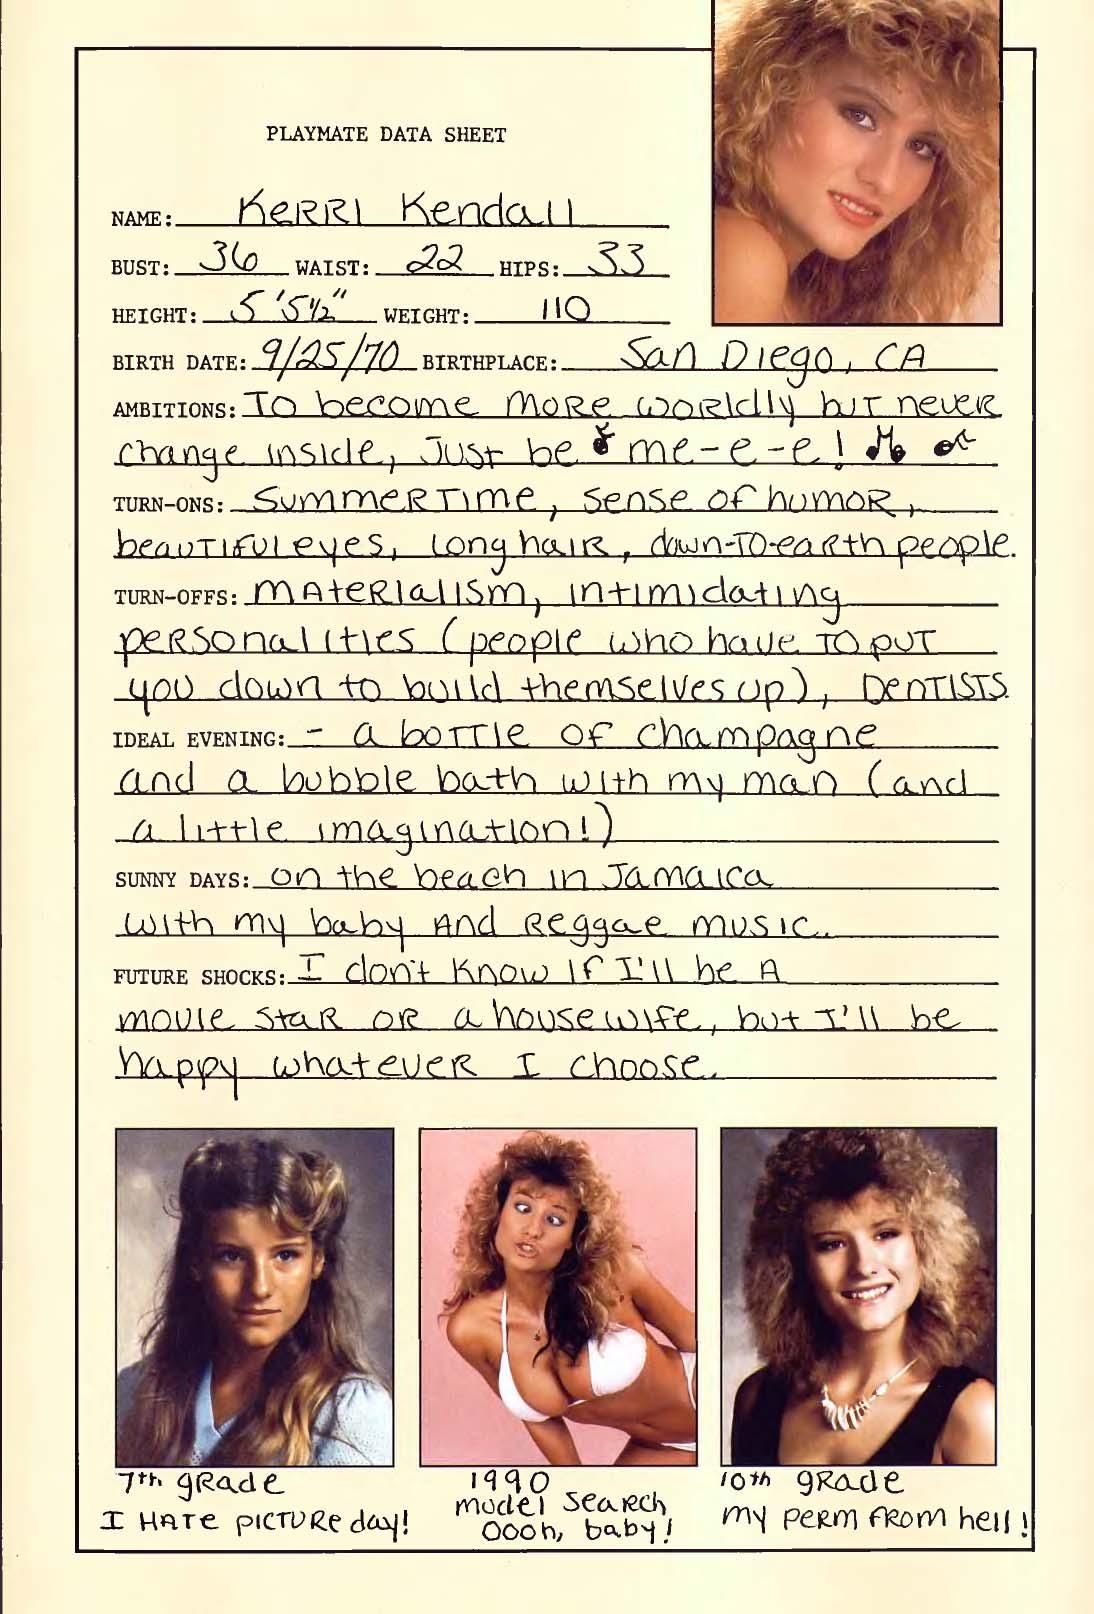 PLAYMATE DATA SHEET
NAME: KERRI Kendall
BUST: 36 WAIST: 22 HIPS: 33
HEIGHT: 5'5½" WEIGHT: 110
BIRTH DATE: 9/25/70 BIRTHPLACE: San Diego, CA
AMBITIONS: To become more worldly but never
change inside, Just be me-e-e!
TURN-ONS: Summertime, sense of humor,
beautiful eyes, long hair, down-to-earth people.
TURN-OFFS: Materialism, intimidating
personalities (people who have to put
you down to build themselves up), Dentists.
IDEAL EVENING: - a bottle of champagne
and a bubble bath with my man (and
a little imagination!)
SUNNY DAYS: on the beach in Jamaica
with my baby and Reggae music.
FUTURE SHOCKS: I don't know if I'll be a
movie star or a housewife, but I'll be
happy whatever I choose.
7th grade
I Hate picture day!
1990
model search
Oooh, baby!
10th grade
my perm from hell!